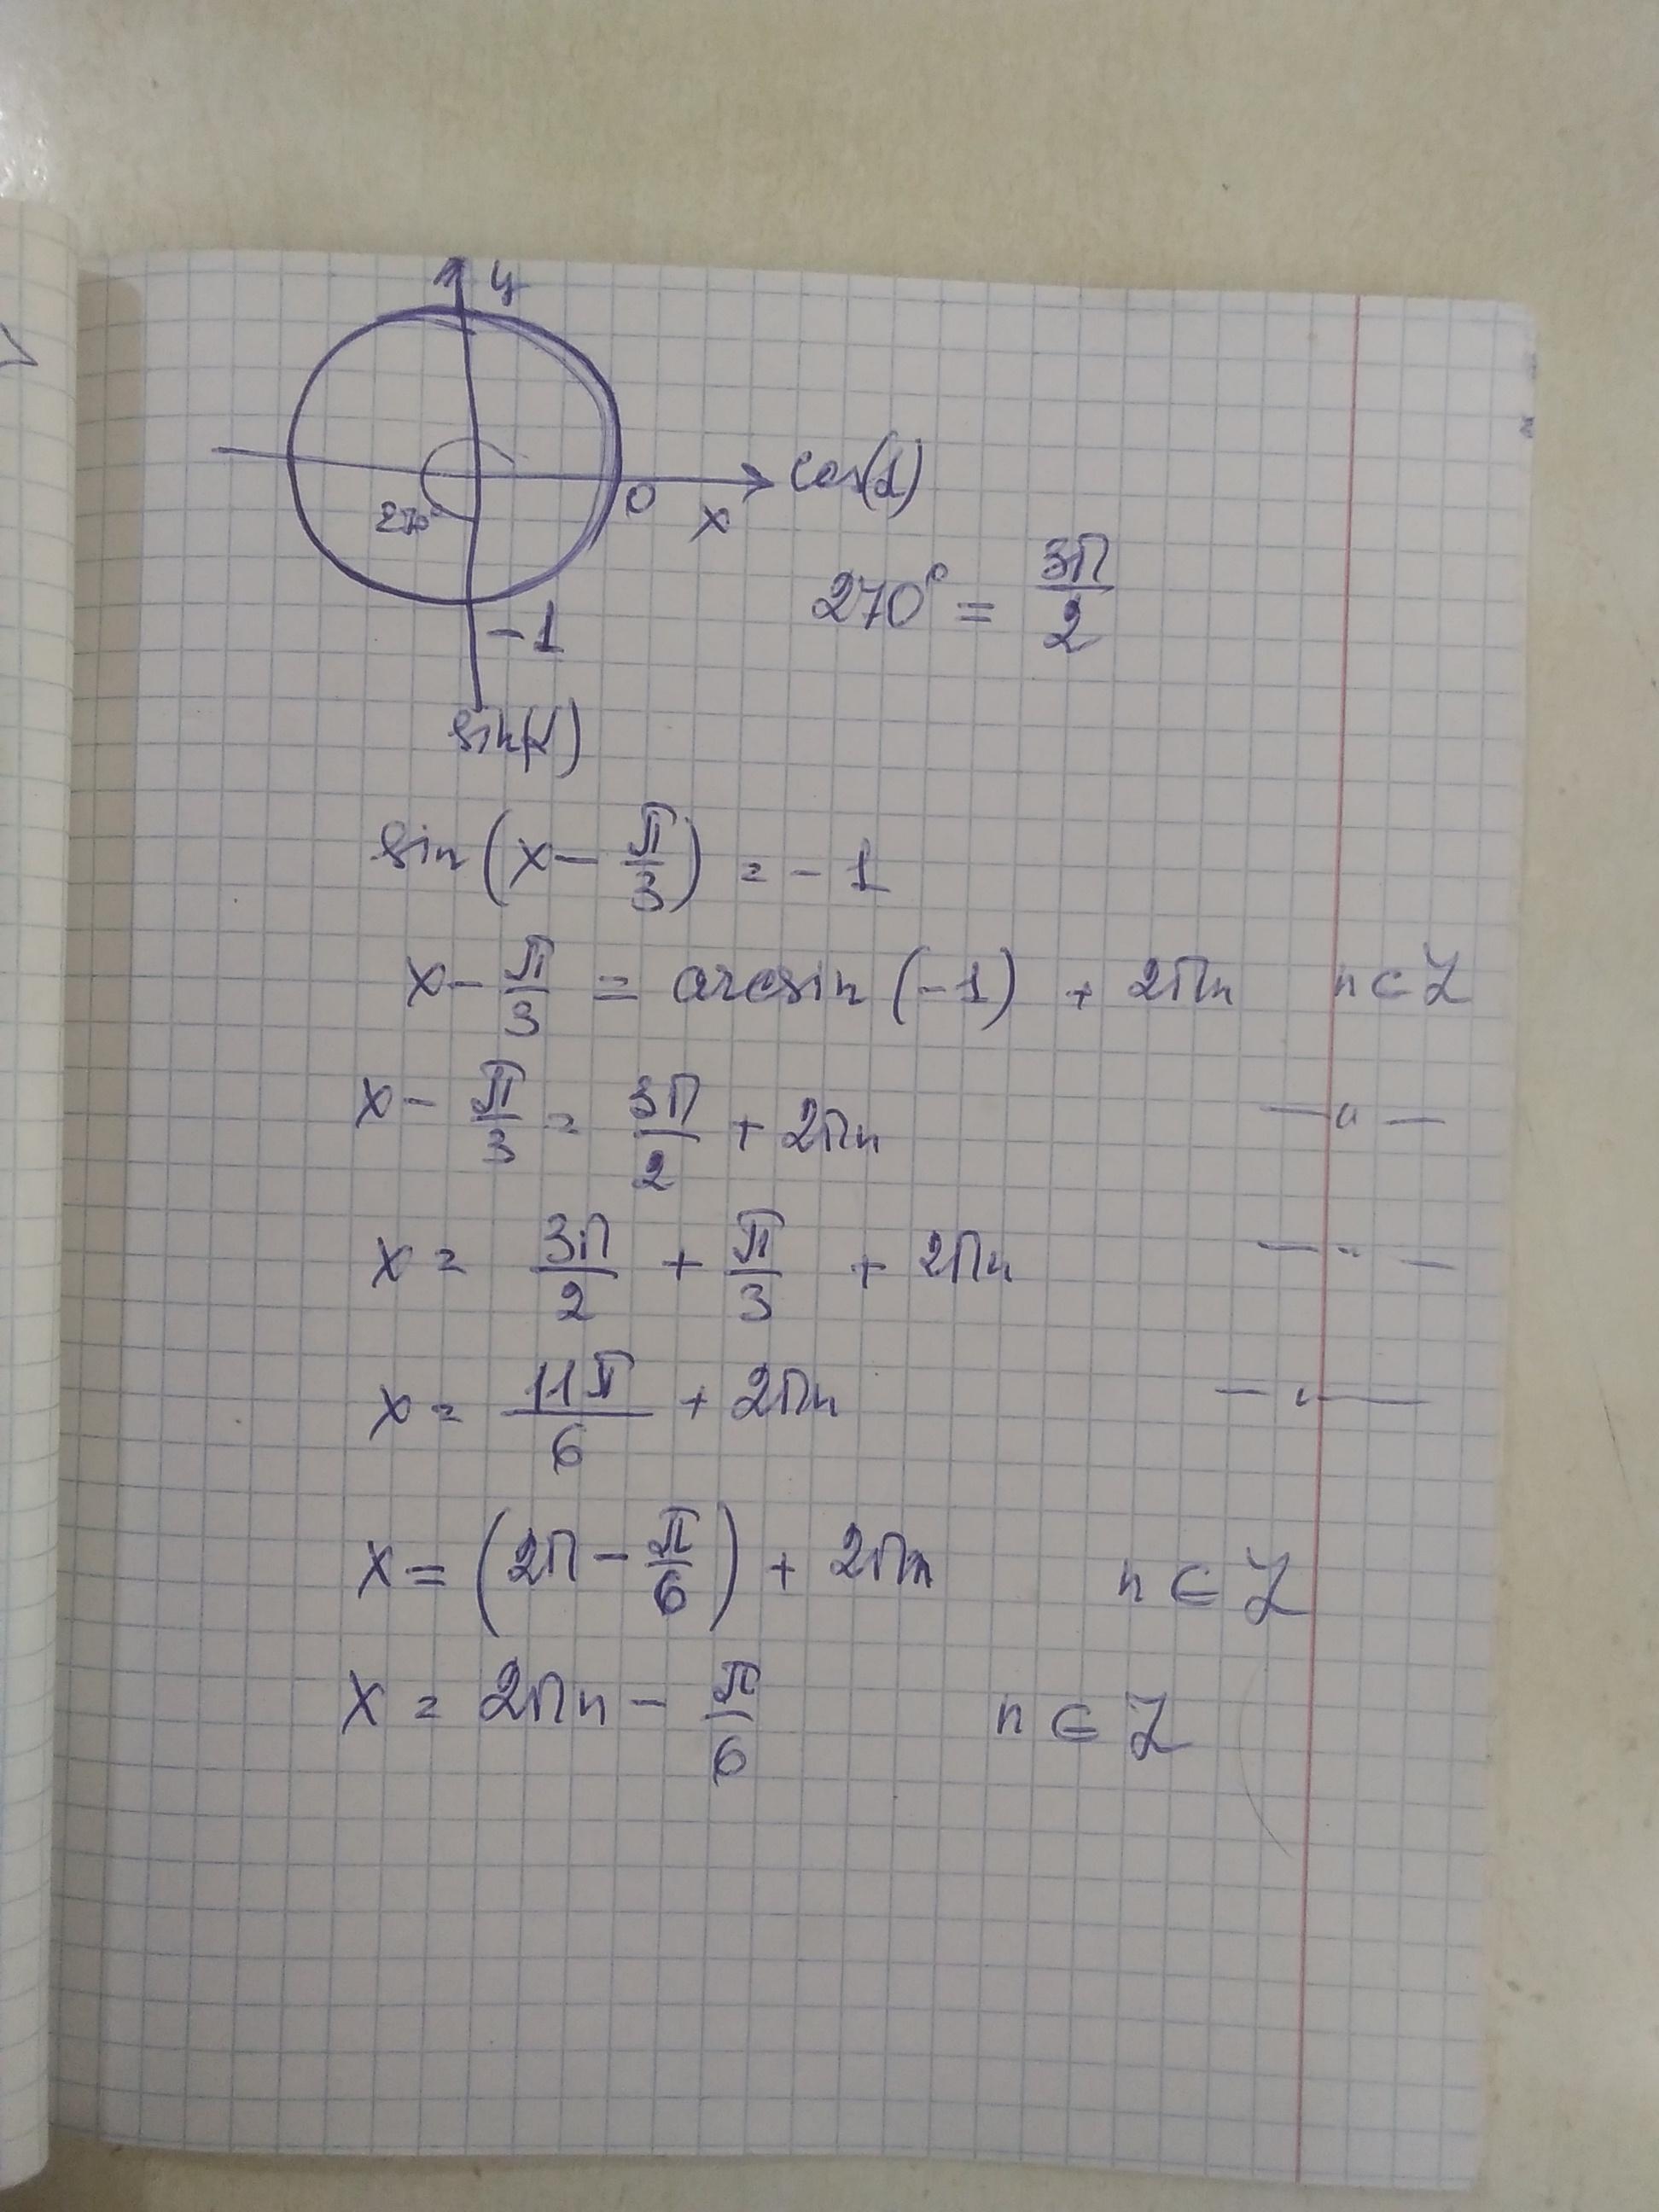 y
cos(α)
0
x
270°
-1
sin(α)
270° = 3π/2
sin(x - π/3) = -1
x - π/3 = arcsin(-1) + 2πn n ∈ Z
x - π/3 = 3π/2 + 2πn —"—
x = 3π/2 + π/3 + 2πn —"—
x = 11π/6 + 2πn —"—
x = (2π - π/6) + 2πn n ∈ Z
x = 2πn - π/6 n ∈ Z